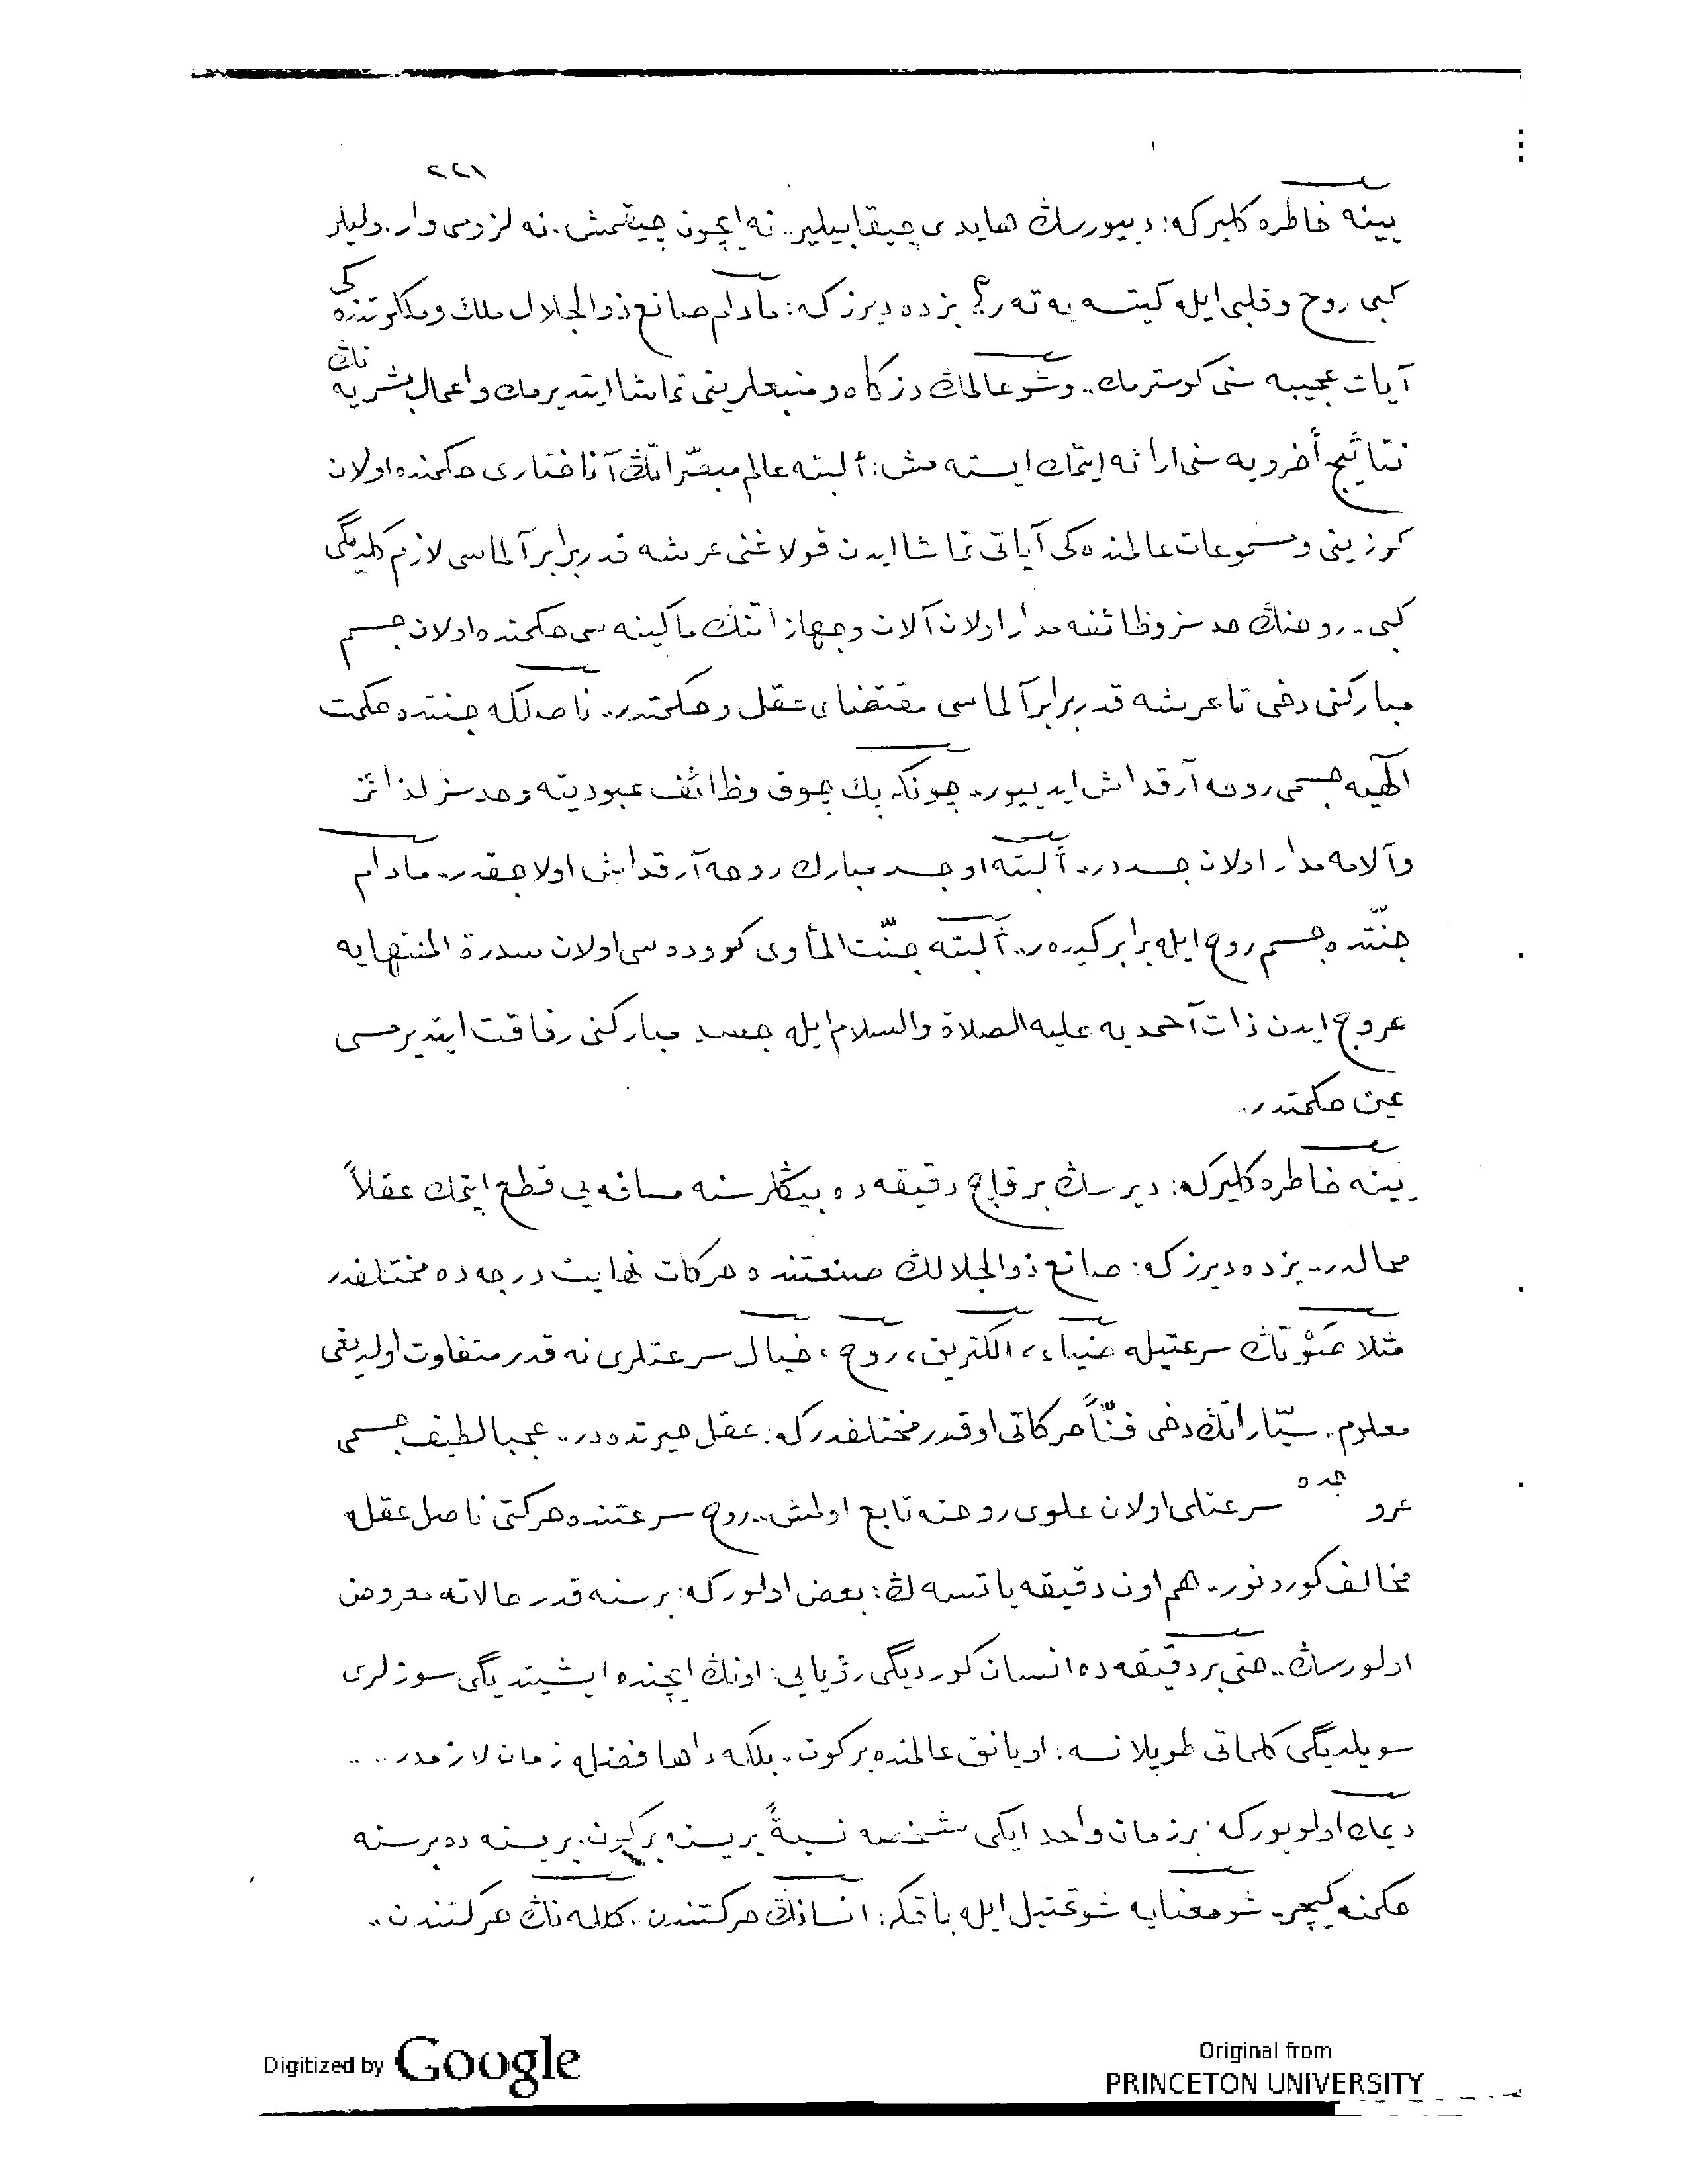 ٢٢١
يينه خاطره كليركه: دييورسڭ هايدى چيقابيلير.. نه ايچون چيقمش. نه لزومى وار. وليلر
كبى روح و قلبى ايله كيتسه يه ته ر؟ بز ده ديرز كه: مادام صانع ذوالجلال ملك و ملكوتنده كى
آيات عجيبه سنى كوسترمك.. و شو عالمڭ دزكاه و منبعلرينى تماشا ايتديرمك و اعمال بشريه نڭ
نتائج أخرويه سنى ارائه ايتمك ايسته مش: ألبته عالم مبصّراتڭ آناختارى حكمنده اولان
كوزينى و مسموعات عالمنده كى آياتى تماشا ايدن قولاغنى عرشه قدر برابر آلماسى لازم كلديگى
كبى.. روحنڭ حدسز وظائفه مدار اولان آلات و جهازاتنڭ ماكينه سى حكمنده اولان جسم
مباركنى دخى تا عرشه قدر برابر آلماسى مقتضاى عقل و حكمتدر.. ناصلكه جنتده حكمت
الٓهيه جسمى روحه آرقداش ايدييور.. چونكه پك چوق وظائف عبوديته و حدسز لذائذ
و آلامه مدار اولان جسددر.. ألبته او جسد مبارك روحه آرقداش اولاجقدر.. مادام
جنّتده جسم روح ايله برابر كيده ر.. ألبته جنّت المأوى كوودە سى اولان سدرة المنتهايه
عروج ايدن ذات آحمديه عليه الصلاة والسلام ايله جسد مباركنى رفاقت ايتديرمسى
عين حكمتدر..
يينه خاطره كليركه: ديرسڭ برقاچ دقيقه ده بيڭلر سنه مسافه يى قطع ايتمك عقلاً
محالدر.. بز ده ديرز كه: صانع ذوالجلالڭ صنعتنده حركات نهايت درجه ده مختلفدر
مثلا صَوْتڭ سرعتيله ضياء، الكتريق، روح، خيال سرعتلرى نه قدر متفاوت اولديغى
معلوم.. سيّاراتڭ دخى فنّاً حركاتى اوقدر مختلفدركه: عقل حيرتده در.. عجبا لطيف جسمى
عروجده سرعتلى اولان علوى روحنه تابع اولمش.. روح سرعتنده حركتى ناصل عقله
مخالف كورونور.. هم اون دقيقه ياتسه ڭ: بعض اولوركه: بر سنه قدر حالاته معروض
اولورسڭ.. حتى بر دقيقه ده انسان كورديگى رؤيايى: اونڭ ايچنده ايشيتديگى سوزلرى
سويلديگى كلماتى طوپلانسه: اويانق عالمنده بر كون.. بلكه داها فضله زمان لازمدر....
ديمك اولويوركه: بر زمان واحد ايكى شخصه نسبةً بريسنه بر كون. بريسنه ده بر سنه
حكمنه كيچر.. شو معنايه شو تمثيل ايله باقكه: انسانڭ حركتندن.. كلله نڭ حركتندن..
Digitized by Google
Original from
PRINCETON UNIVERSITY